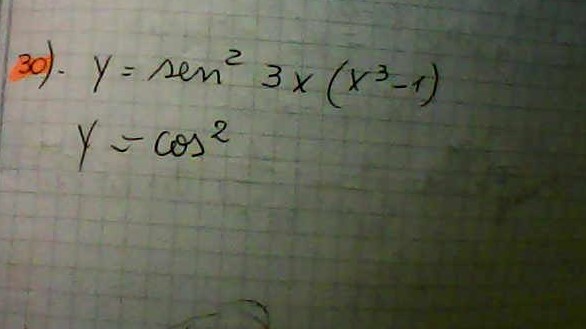 30). y = sen² 3x (x³-1)
y = cos²